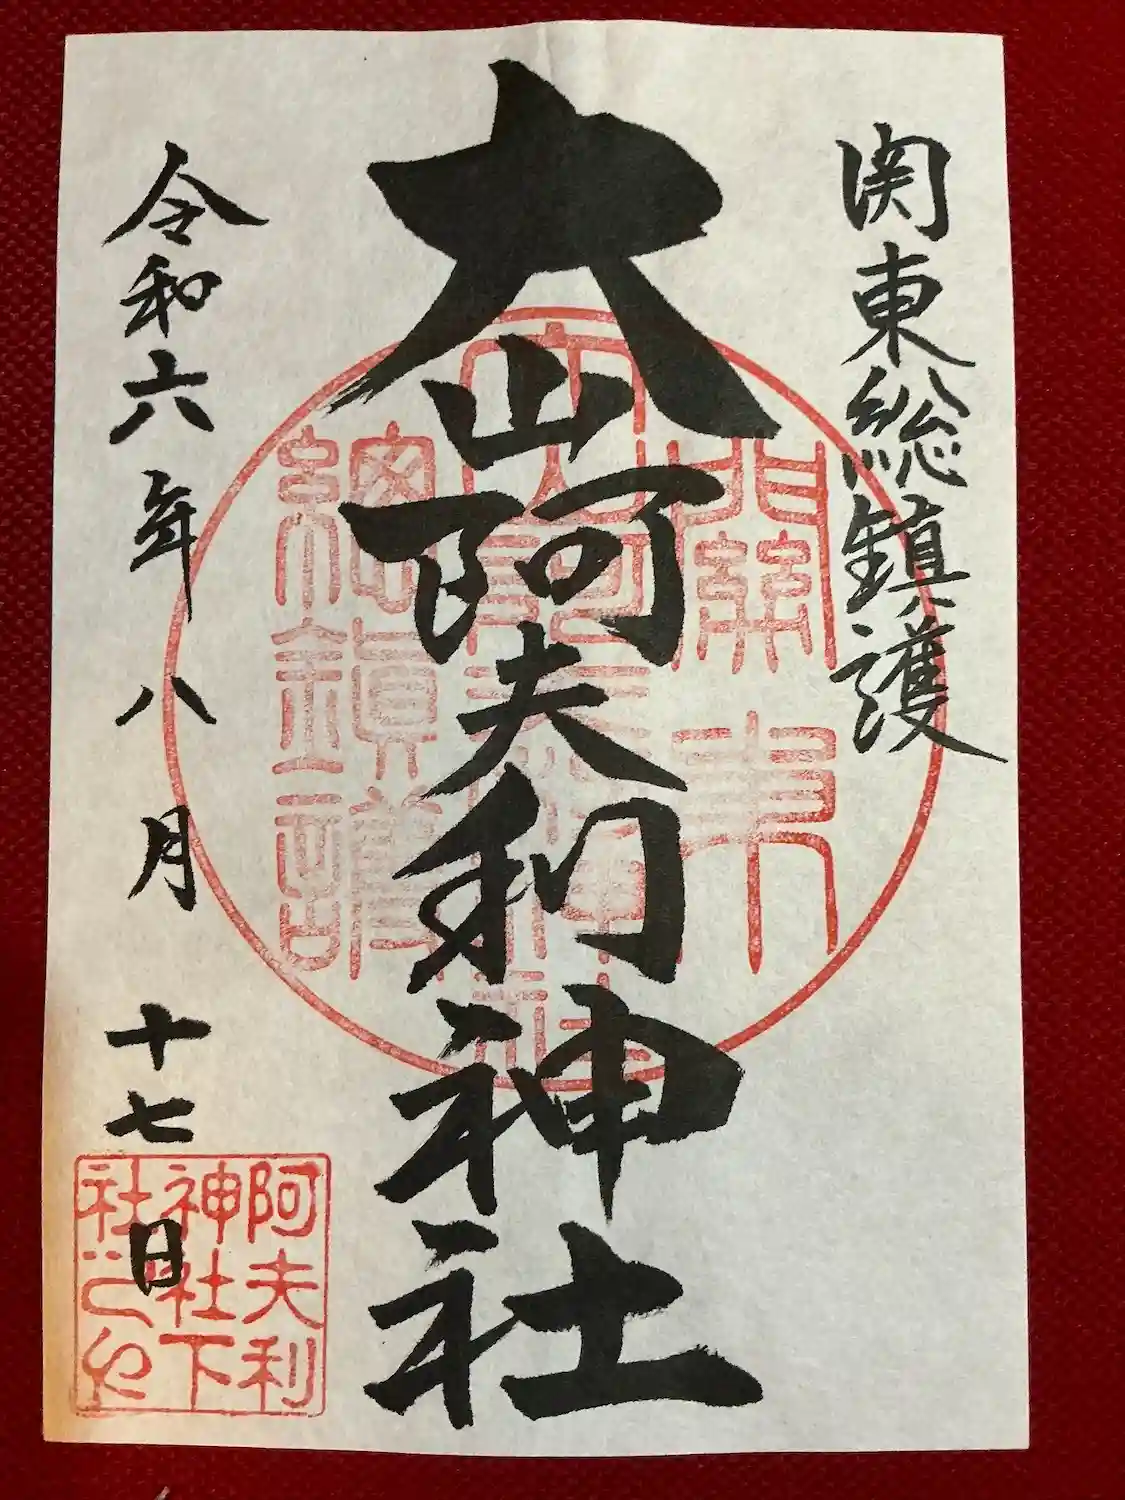 関東総鎮護
大山阿夫利神社
令和六年八月十七日
關東
大山阿夫利神社
総鎮護
阿夫利
神社下
社之印